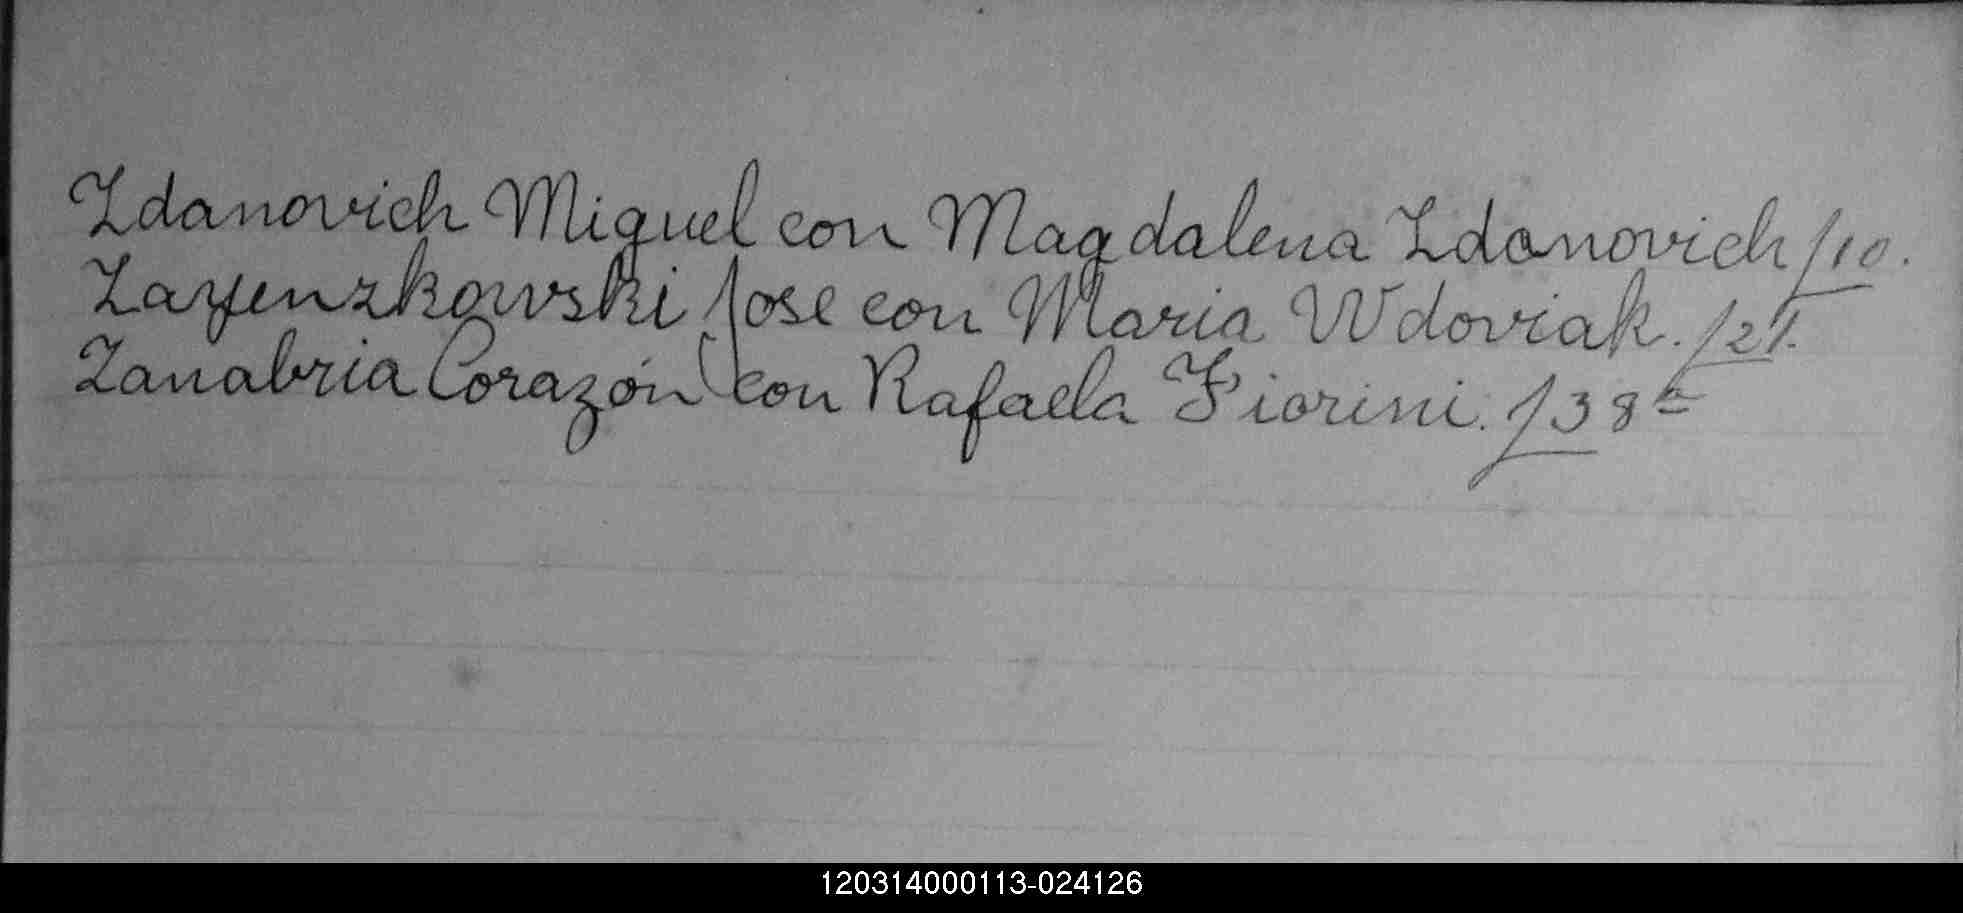 Zdanovich Miguel con Magdalena Zdanovich f 10.
Zayenzkowski Jose con Maria Wdoviak. f 21.
Zanabria Corazón con Rafaela Fiorini. f 38
120314000113-024126